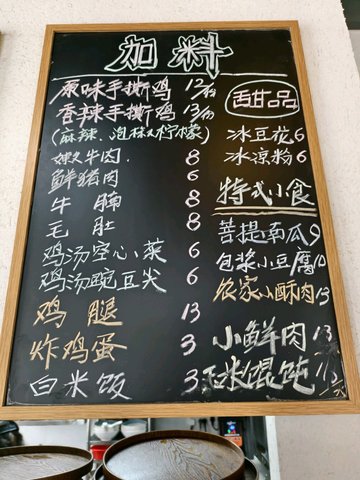 加料
原味手撕鸡 12/份
香辣手撕鸡 13/份
(麻辣、泡椒又柠檬)
嫩牛肉 8
鲜猪肉 6
牛腩 8
毛肚 8
鸡汤空心菜 6
鸡汤豌豆尖 6
鸡腿 13
炸鸡蛋 3
白米饭 3
甜品
冰豆花 6
冰凉粉 6
特式小食
菩提南瓜 9
包浆小豆腐 10
农家小酥肉 13
小鲜肉 13
玉米馄饨